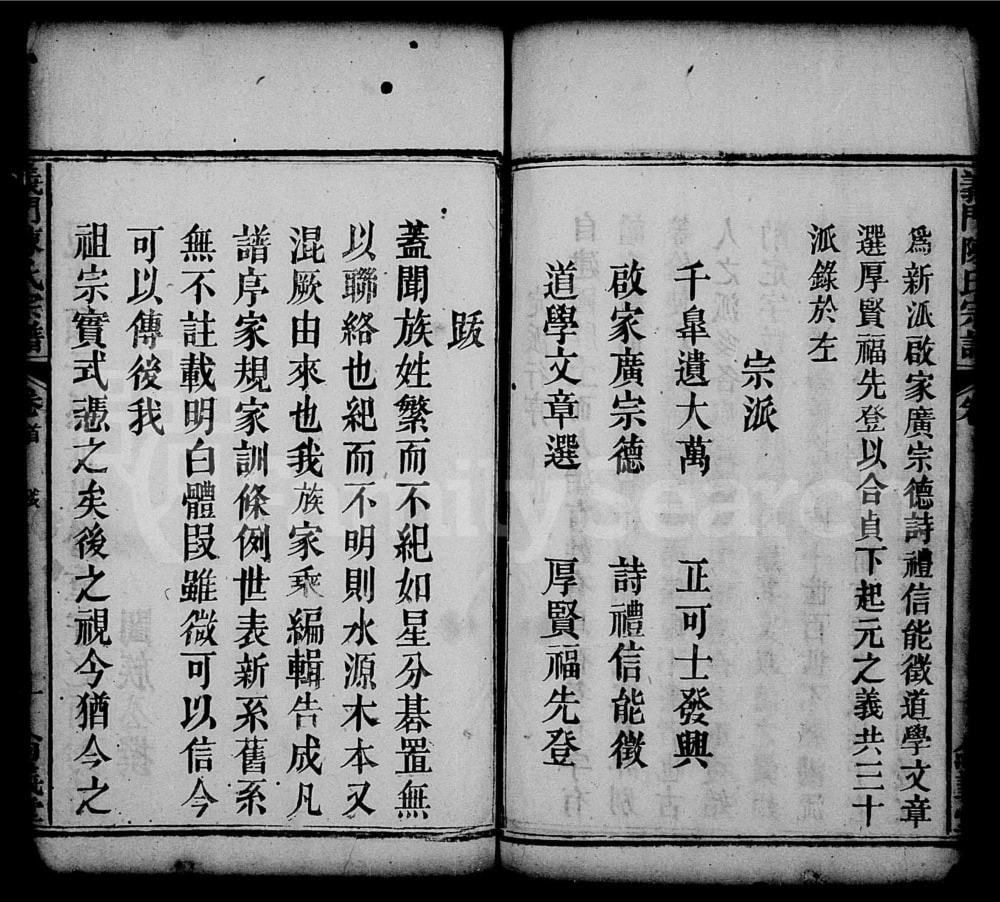 為新派啟家廣宗德詩禮信能徵道學文章
選厚賢福先登以合貞下起元之義共三十
派錄於左
宗派
千臯遺大萬　正可士發興
啟家廣宗德　詩禮信能徵
道學文章選　厚賢福先登
跋
蓋聞族姓繁而不紀如星分碁置無
以聯絡也紀而不明則水源木本又
混厥由來也我族家乘編輯告成凡
譜序家規家訓條例世表新系舊系
無不註載明白體叚雖微可以信今
可以傳後我
祖宗實式憑之矣後之視今猶今之
義門陳氏宗譜
卷首